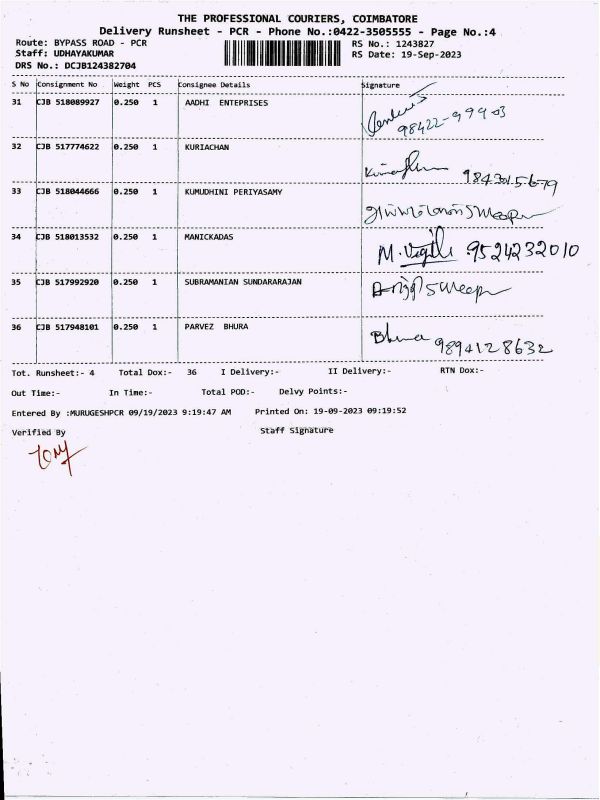 THE PROFESSIONAL COURIERS, COIMBATORE
Delivery Runsheet - PCR - Phone No.:0422-3505555 - Page No.:4
Route: BYPASS ROAD - PCR RS No.: 1243827
Staff: UDHAYAKUMAR RS Date: 19-Sep-2023
DRS No.: DCJB124382704
S No Consignment No Weight PCS Consignee Details Signature
31 CJB 518089927 0.250 1 AADHI ENTEPRISES
98422-99903
32 CJB 517774622 0.250 1 KURIACHAN
9843015679
33 CJB 518044666 0.250 1 KUMUDHINI PERIYASAMY
Sweeper
34 CJB 518013532 0.250 1 MANICKADAS
M. 9524232010
35 CJB 517992920 0.250 1 SUBRAMANIAN SUNDARARAJAN
Sweeper
36 CJB 517948101 0.250 1 PARVEZ BHURA
Bhura 9894128632
Tot. Runsheet:- 4 Total Dox:- 36 I Delivery:- II Delivery:- RTN Dox:-
Out Time:- In Time:- Total POD:- Delvy Points:-
Entered By :MURUGESHPCR 09/19/2023 9:19:47 AM Printed On: 19-09-2023 09:19:52
Verified By Staff Signature